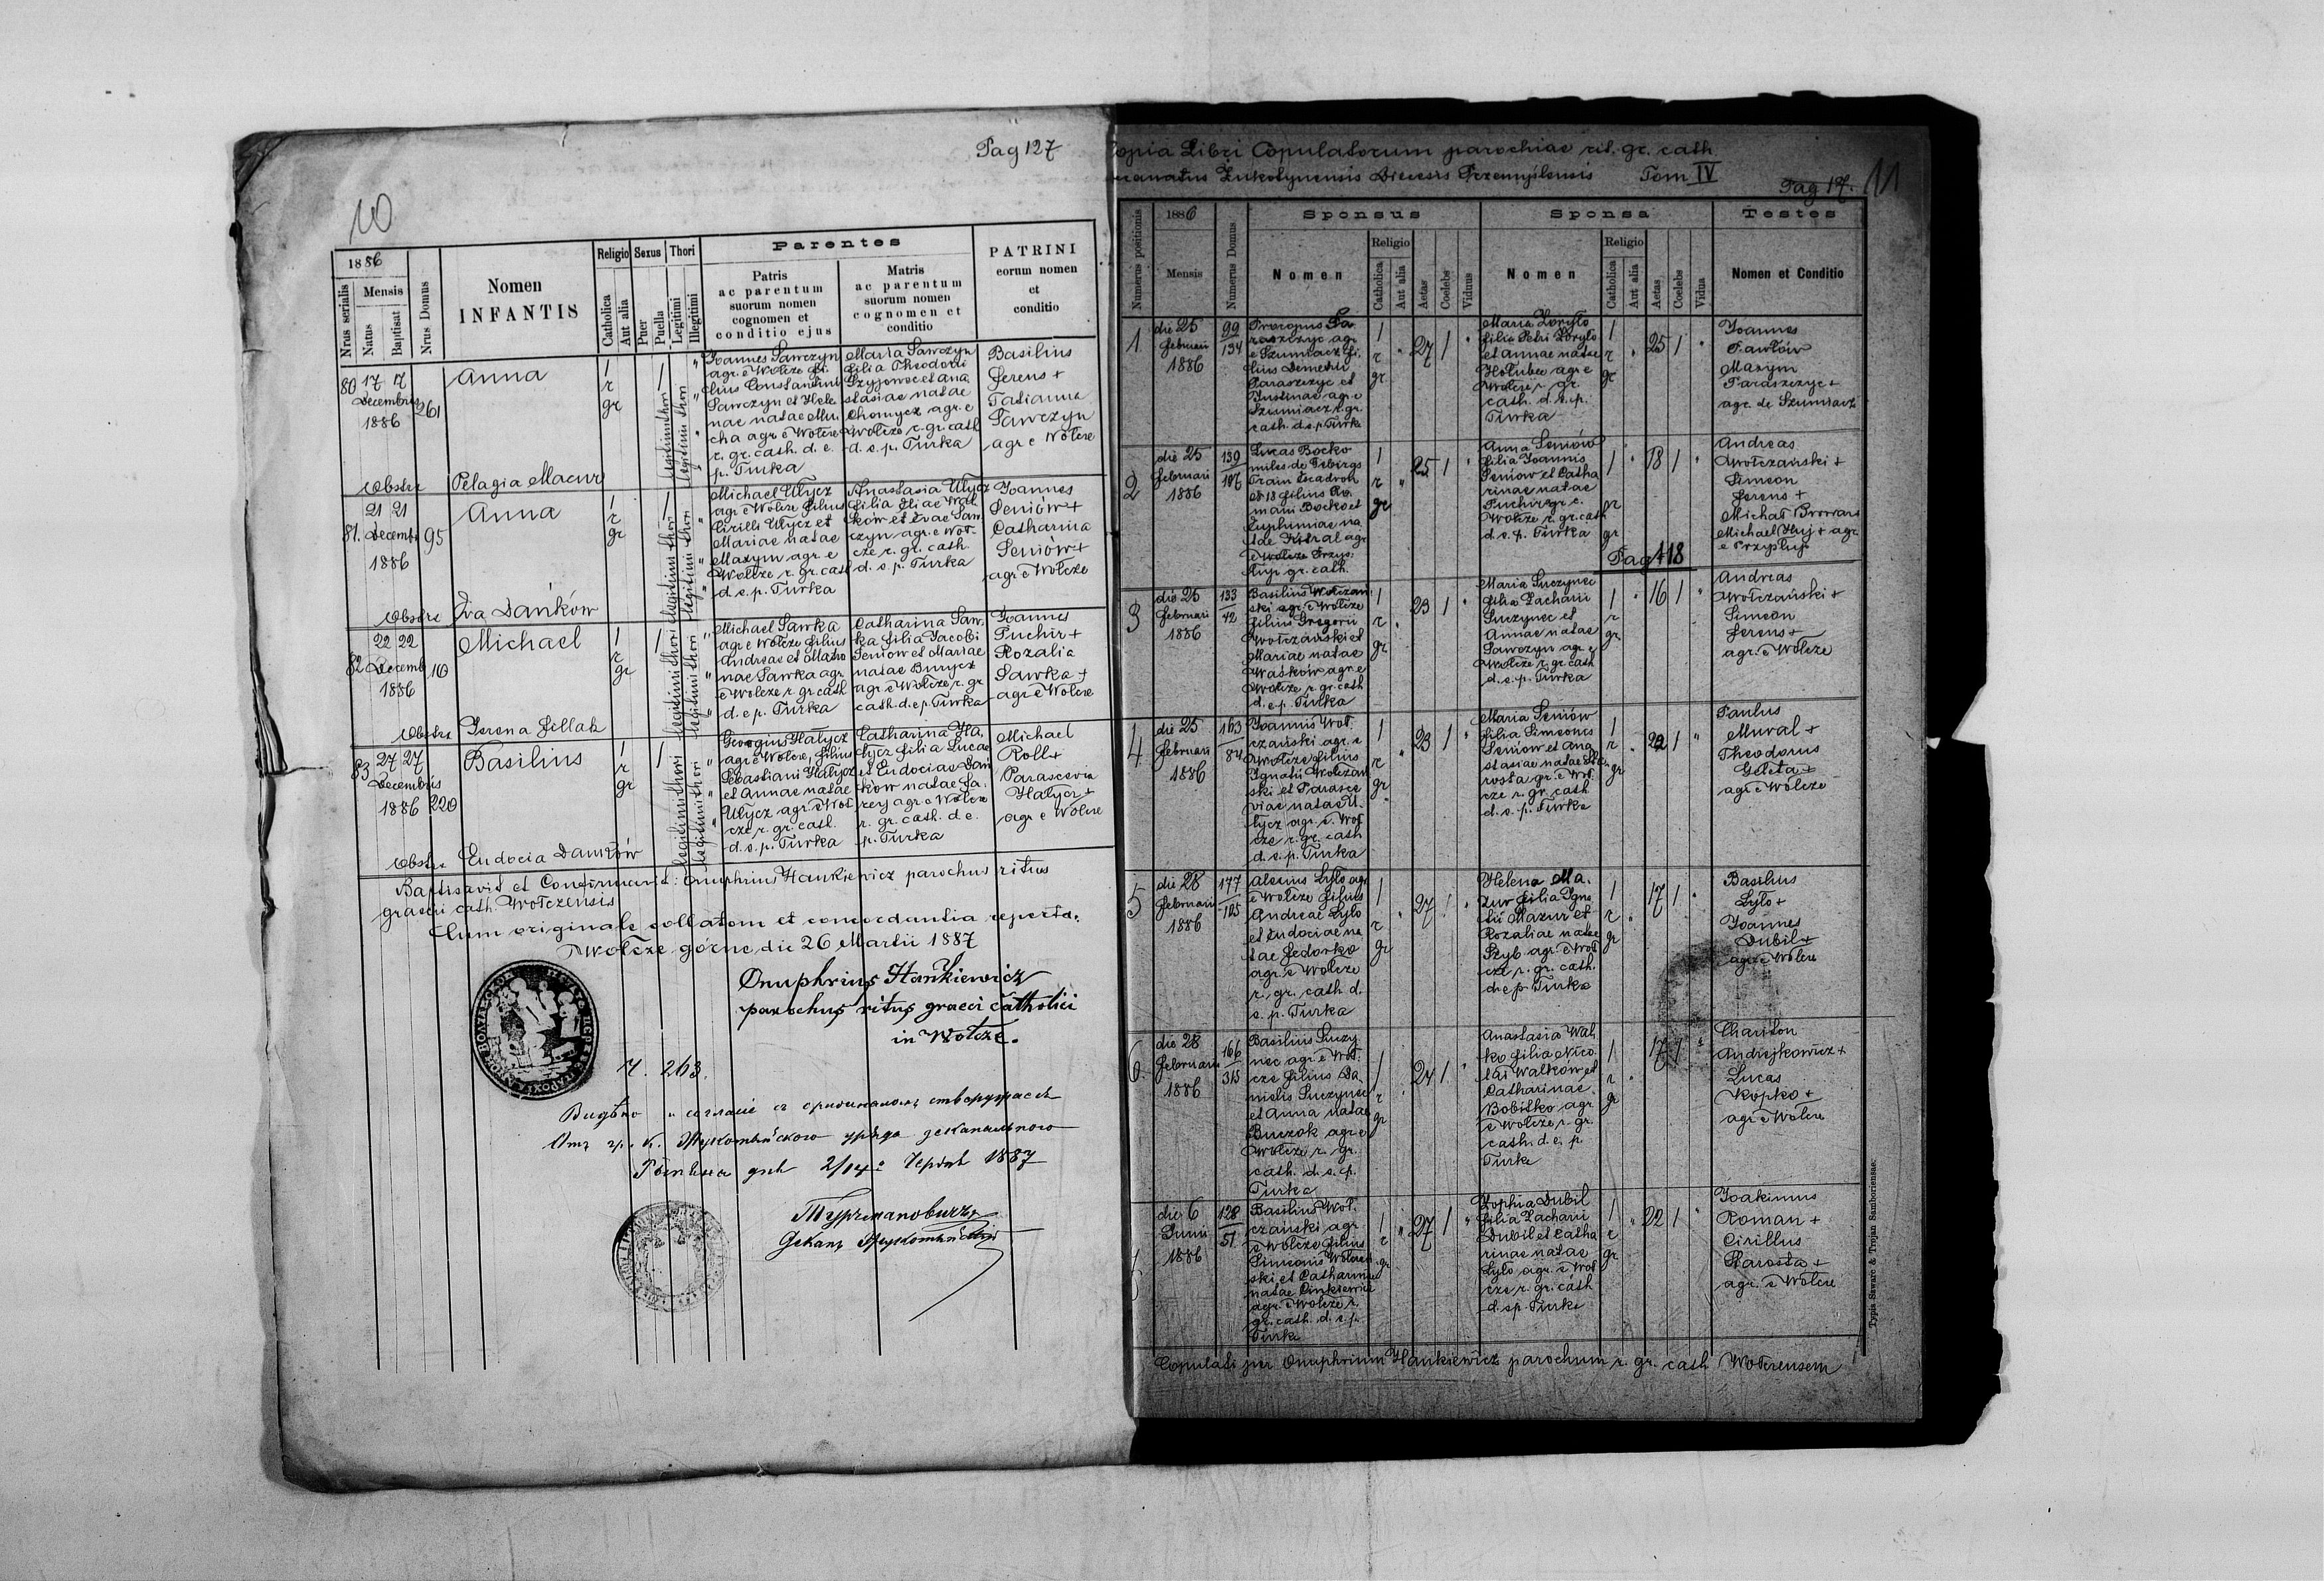 Pag 127
10
1886
Nrus serialis
Mensis
Natus
Baptisat
Nrus Domus
Nomen
INFANTIS
Religio
Catholica
Aut alia
Sexus
Puer
Puella
Thori
Legitimi
Illegitimi
Parentes
Patris
ac parentum
suorum nomen
cognomen et
conditio ejus
Matris
ac parentum
suorum nomen
cognomen et
conditio
PATRINI
eorum nomen
et
conditio
80 17 17
Decembris
1886
261
Anna
1
r
gr
legitimi thori
Joannes Sawczyn
agr. e Wołcze fi.
lius Constantini
Sawczyn et Hele
nae natae Mu.
cha agr e Wołcze
r. gr. cath. d. e.
p. Turka
Maria Sawczyn
filia Theodori
et Ana
stasiae natae
Chomycz agr. e
Wołcze r. gr. cath
d. e. p. Turka
Basilius
Ferens +
Tatianna
Sawczyn
agr e Wołcze
Obstre Pelagia Macur
21 21
81. Decemb
1886
95
Anna
1
r
gr
legitimi thori
Michael Ułycz
agr e Wołcze filius
Cirilli Ułycz et
Mariae natae
Maxym agr. e
Wołcze r. gr. cath
d. e. p. Turka
Anastasia Ułycz
filia Eliae Wał
ków et Evae Saw
czyn agr. e Woł.
cze r. gr. cath.
d. e. p. Turka
Joannes
Seniów +
Catharina
Seniów +
agr e Wołcze
Obstre Eva Danków
22 22
82 Decemb
1886
10
Michael
1
r
gr
legitimi thori
Michael Sawka
agr e Wołcze filius
Andreae et Matro
nae Sawka agr
e Wołcze r. gr. cath
d. e p. Turka
Catharina Saw.
ka filia Jacobi
Seniow et Mariae
natae Burycz
agr e Wołcze r. gr
cath. d. e p. Turka
Joannes
Puchir +
Rozalia
Sawka +
agr e Wołcze
Obstre Irena Fillak
83 27 27
Decembris
1886 220
Basilius
1
r
gr
legitimi thori
Georgius Hałycz
agr e Wołcze, filius
Sebastiani Hałycz
et Annae natae
Ułycz agr e Woł
cze r. gr. cath.
d. e. p. Turka
Catharina Ha.
łycz filia Lucae
et Eudociae Dan
kow natae
agr e Wołcze
r. gr. cath. d. e.
p. Turka
Michael
Roll +
Parascevia
Hałycz +
agr e Wołcze
Obstre Eudocia Danków
Baptisavit et Confirmavit: Onuphrius Hankiewicz parochus ritus
graeci cath. Wołczensis
Cum originale collatam et concordantia reperta.
Wołcze górne die 26 Martii 1887
Onuphrius Hankiewicz
parochus ritus graeci catholici
in Wołcze.
Ч. 263.
2/14 1887
Pag 17. 11
Copia Libri Copulatorum parochiae rit. gr. cath
Żukotynensis Diecesis Przemyslensis Tom IV
Numerus positionis
1886
Mensis
Numerus Domus
Sponsus
Nomen
Religio
Catholica
Aut alia
Aetas
Coelebs
Viduus
Sponsa
Nomen
Religio
Catholica
Aut alia
Aetas
Coelebs
Vidua
Testes
Nomen et Conditio
1
die 25
Februari
1886
99
134
Procopus Pa
raszczyc agr
e Szumiacz fi.
lius Demetrii
Paraszczyc et
Justinae agr e
Szumiacz r. gr.
cath. d. e. p. Turka
1
r
gr
27 1
Maria Loryło
filia Petri Loryło
et Annae natae
Hołubec agr e
Wołcze r. gr.
cath. d. e. p.
Turka
1
r
gr
25 1
Joannes
Pawłów
Maxym
Paraszczyc +
agr. de Szumiacz
2
die 25
Februari
1886
139
107
Lucas Bocko
miles de
Train Escadron
filius Ro.
mani Bocko et
Euphimiae na
tae Kural agr
e Wołcze Przys.
łup gr. cath.
1
r
gr
25 1
Anna Seniów
filia Joannis
Seniów et Catha
rinae natae
Puchir gr e.
Wołcze r. gr. cath
d. e. p. Turka
1
gr
18 1
Andreas
Wołczański +
Simeon
Ferens +
Michał
Michael Huj + agr
e Przysłup
Pag 118
3
die 25
Februari
1886
133
42
Basilius Wołczan
ski agr. e Wołcze
filius Gregorii
Wołczański et
Mariae natae
Waśków agr e
Wołcze r. gr. cath
d. e p. Turka
1
r
gr
23 1
Maria Suczynec
filia Zacharii
Suczynec et
Annae natae
Sawczyn agr e
Wołcze r. gr. cath
d. e. p. Turka
1
r
gr
16 1
Andreas
Wołczański +
Simeon
Ferens +
agr. e Wołcze
4
die 25
Februari
1886
163
84
Joannis Woł.
czański agr. e
Wołcze filius
Ignatii Wołczań
ski et Parasce
viae natae U.
łycz agr. e. Woł
cze r. gr. cath
d. e. p. Turka
1
r
gr
23 1
Maria Seniów
filia Simeonis
Seniow et Ana
stasiae natae Sta
rosta gr. e Woł.
cze r. gr. cath
d. e. p. Turka
1
r
gr
22 1
Paulus
Mural +
Theodorus
Goleta +
agr e Wołcze
5
die 28
Februari
1886
177
105
Alexius Lyło agr
e Wołcze filius
Andreae Lyło
et Eudociae na
tae Fedorko
agr. e Wołcze
r. gr. cath. d.
e. p. Turka
1
r
gr
27 1
Helena Ma.
zur filia Igna
tii Mazur et
Rozaliae natae
Szyb agr. e Woł
cze r. gr. cath.
d. e p. Turka
1
r
gr
17 1
Basilius
Lyło +
Joannes
Dubil +
agr. e Wołcze
6.
die 28
Februari
1886
166
315
Basilius Suczy
nec agr. e Woł.
cze filius Da.
nielis Suczynec
et Anna natae
Burzok agr e
Wołcze r. gr.
cath. d. e. p.
Turka
1
r
gr
24 1
Anastasia Wał
ko filia Nico.
lai Walków et
Catharinae
Bobiłko agr.
e Wołcze r. gr.
cath. d. e. p.
Turke
1
r
gr
17 1
Chariton
Andrijkowicz +
Lucas
Kopko +
agr e Wołcze
die 6
Junii
1886
128
51
Basilius Woł.
czański agr.
e Wołcze filius
Simeonis Wołczań
ski et Catharinae
natae Cinkiewicz
agr. e Wołcze r.
gr. cath. d. e. p.
Turke
1
r
gr
27 1
Zophia Dubil
filia Zacharii
Dubil et Catha
rinae natae
Lyło agr. e Woł
cze r. gr. cath
d. e p. Turke
1
r
gr
22 1
Joakimus
Roman +
Cirillus
Starosta +
agr. e Wołcze
Copulati per Onuphrium Hankiewicz parochum r. gr. cath Wołczensem
Typis Saware & Trojan Samboriensae.